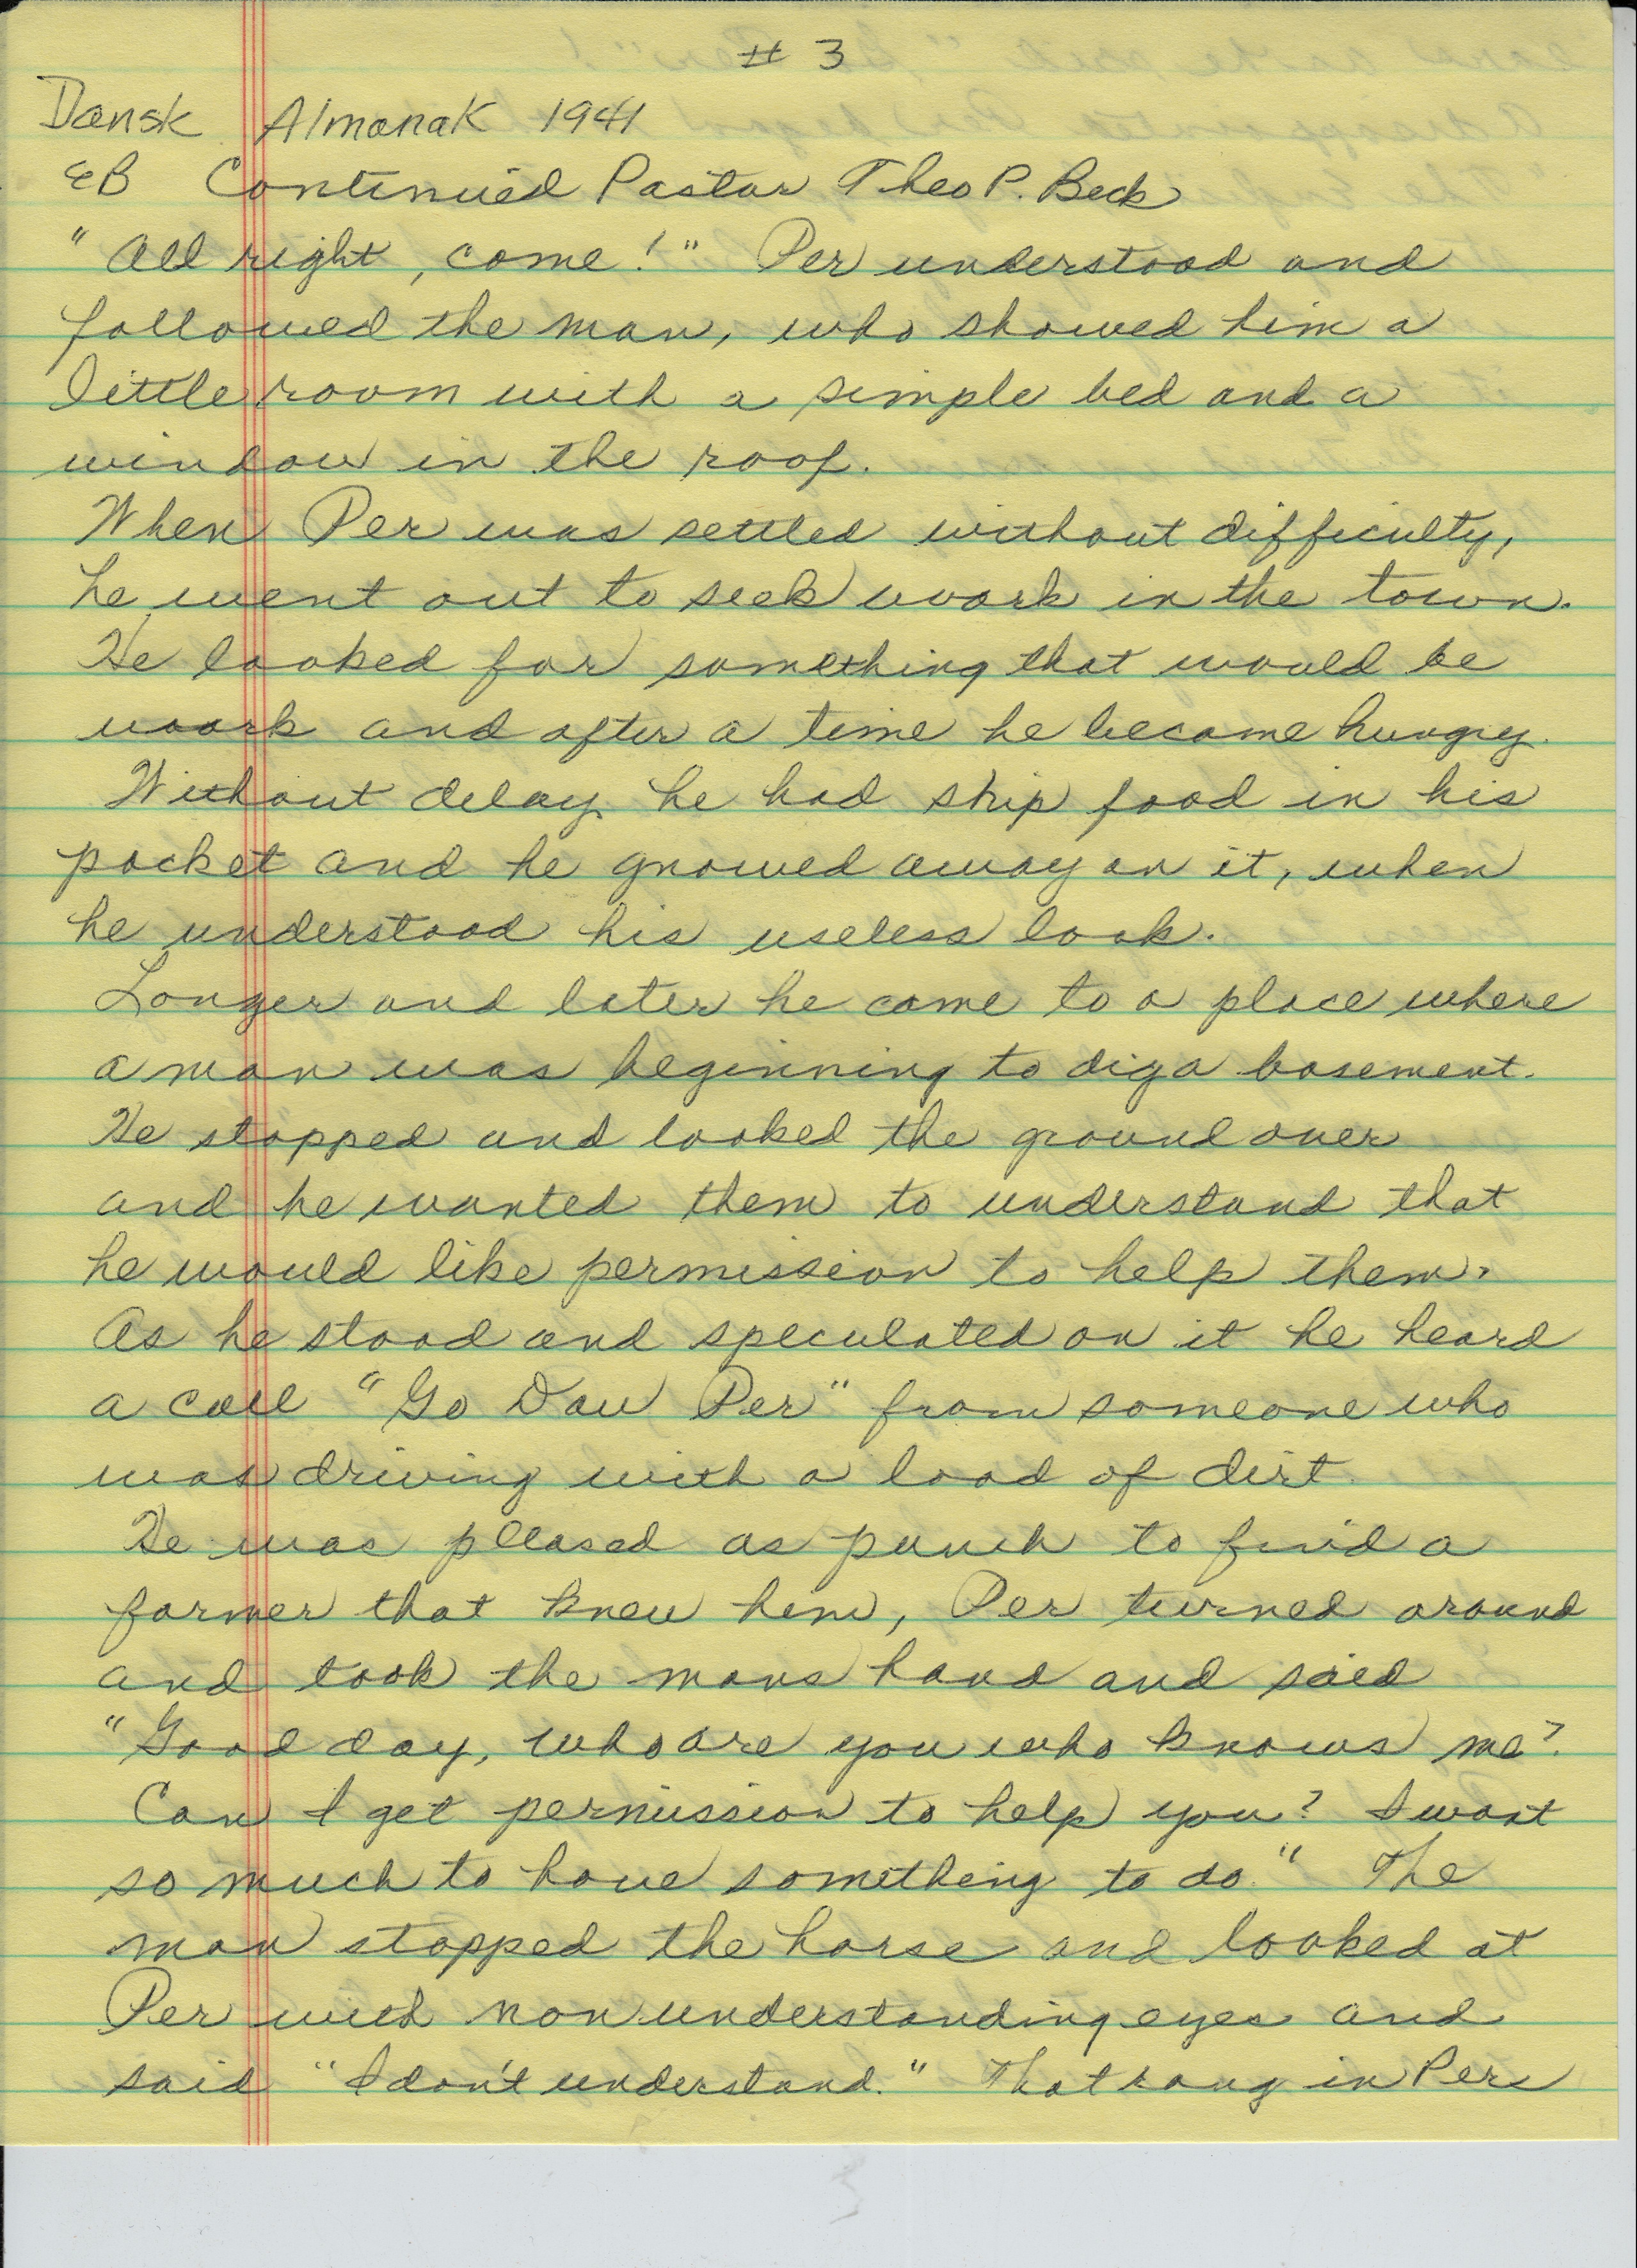 # 3
Dansk Almanak 1941
EB Continued Pastor Theo P. Beck
"All right, come!" Per understood and
followed the man, who showed him a
little room with a simple bed and a
window in the roof.
When Per was settled without difficulty,
he went out to seek work in the town.
He looked for something that would be
work and after a time he became hungry.
Without delay he had ship food in his
pocket and he gnawed away on it, when
he understood his useless look.
Longer and later he came to a place where
a man was beginning to dig a basement.
He stopped and looked the ground over
and he wanted them to understand that
he would like permission to help them.
As he stood and speculated on it he heard
a call "Go Daw Per" from someone who
was driving with a load of dirt.
He was pleased as punch to find a
farmer that knew him, Per turned around
and took the mans hand and said
"Good day, who are you who knows me?
Can I get permission to help you? I want
so much to have something to do." The
man stopped the horse and looked at
Per with non understanding eyes and
said "I don't understand." That rang in Per